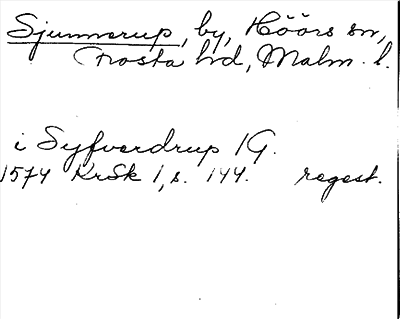 Sjunnerup, by, Höörs sn,
Frosta hd, Malm. l.
i Syfverdrup 1 G.
1574 KrSk 1, s. 144. regest.